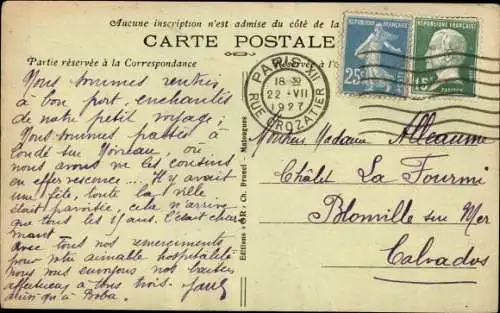 Aucune inscription n'est admise du côté de la
CARTE POSTALE
Partie réservée à la Correspondance
Réservée à l'
PARIS XII
18
22 - VII
1927
RUE CROZATIER
25c
15c
PASTEUR
Nous sommes rentrés
à bon port, enchantés
de notre petit voyage;
Nous sommes passés à
Condé sur Noireau, où
nous avons vu les cousins
en effervescence... Il y avait
une fête, toute la ville
était pavoisée, cela n'arrive
que tous les 4 ans. C'était char
mant.
Avec tous nos remerciements
pour votre aimable hospitalité
Nous vous envoyons nos baisers
affectueux à tous trois.
ainsi qu'à Boba.
Editions "OR", Ch. Brunel - Matougues
Monsieur Madame Alleaume
Châlet La Fourmi
Blonville sur Mer
Calvados